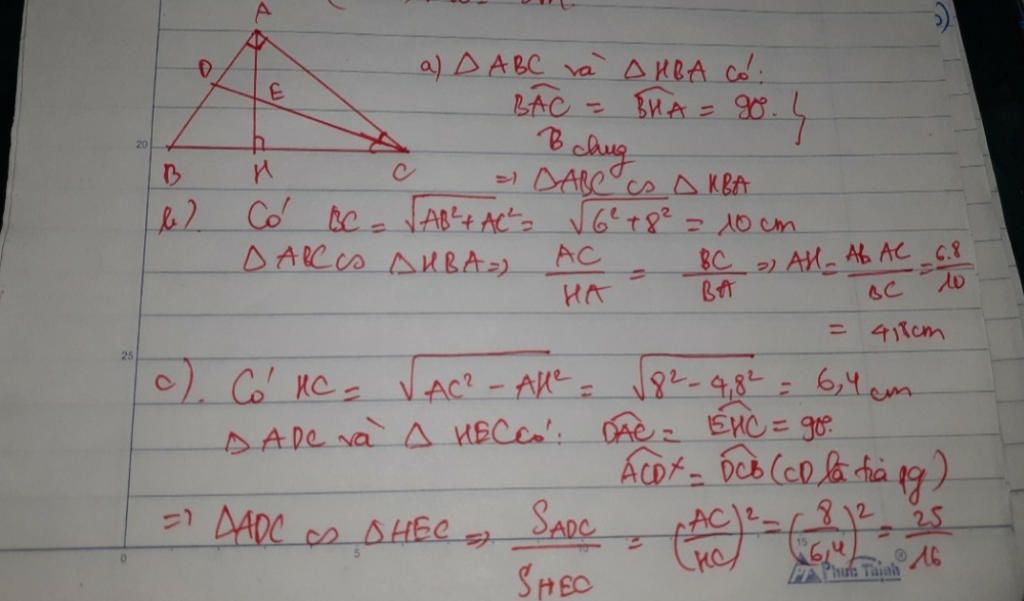 A
D
E
B H C
20
a) △ABC và △HBA có:
BAC^ = BHA^ = 90°. }
B^ chung
=> △ABC ∽ △HBA
b). Có BC = √(AB²+AC²) = √(6²+8²) = 10 cm
△ABC ∽ △HBA => AC/HA = BC/BA => AH = Ab AC/BC = 6.8/10
= 4,8cm
25
c). Có HC = √(AC² - AH²) = √(8² - 4,8²) = 6,4 cm
△ADC và △HEC có: DAC^ = EHC^ = 90°.
ACD^ = DCB^ (CD là tia pg)
=> △ADC ∽ △HEC => S_ADC/S_HEC = (AC/HC)² = (8/6,4)² = 25/16
0 5 10 15
Phúc Thịnh®